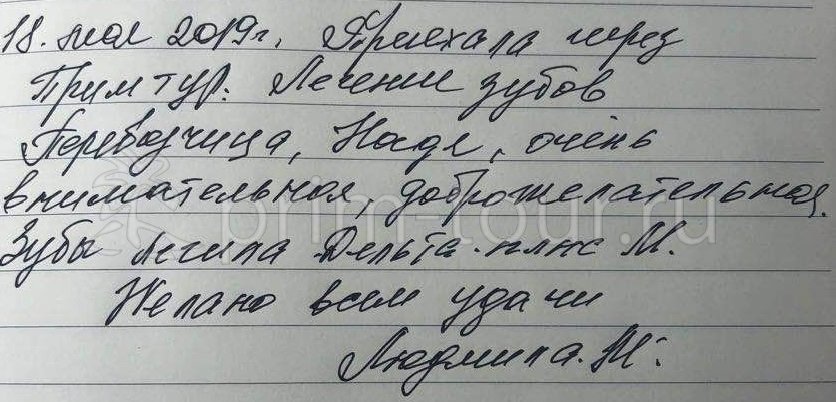 18. мая 2019г. Приехала через
Прим тур. Лечение зубов
Переводчица, Надя, очень
внимательная, доброжелательная.
prim-tour.ru
Зубы лечила Дельта-плюс М.
Желаю всем удачи
Людмила. М.